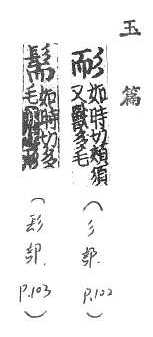 玉篇
耏 如時切頰須
又獸多毛
(彡部. p.102)
髵 如時切多
毛
(髟部. p.103)